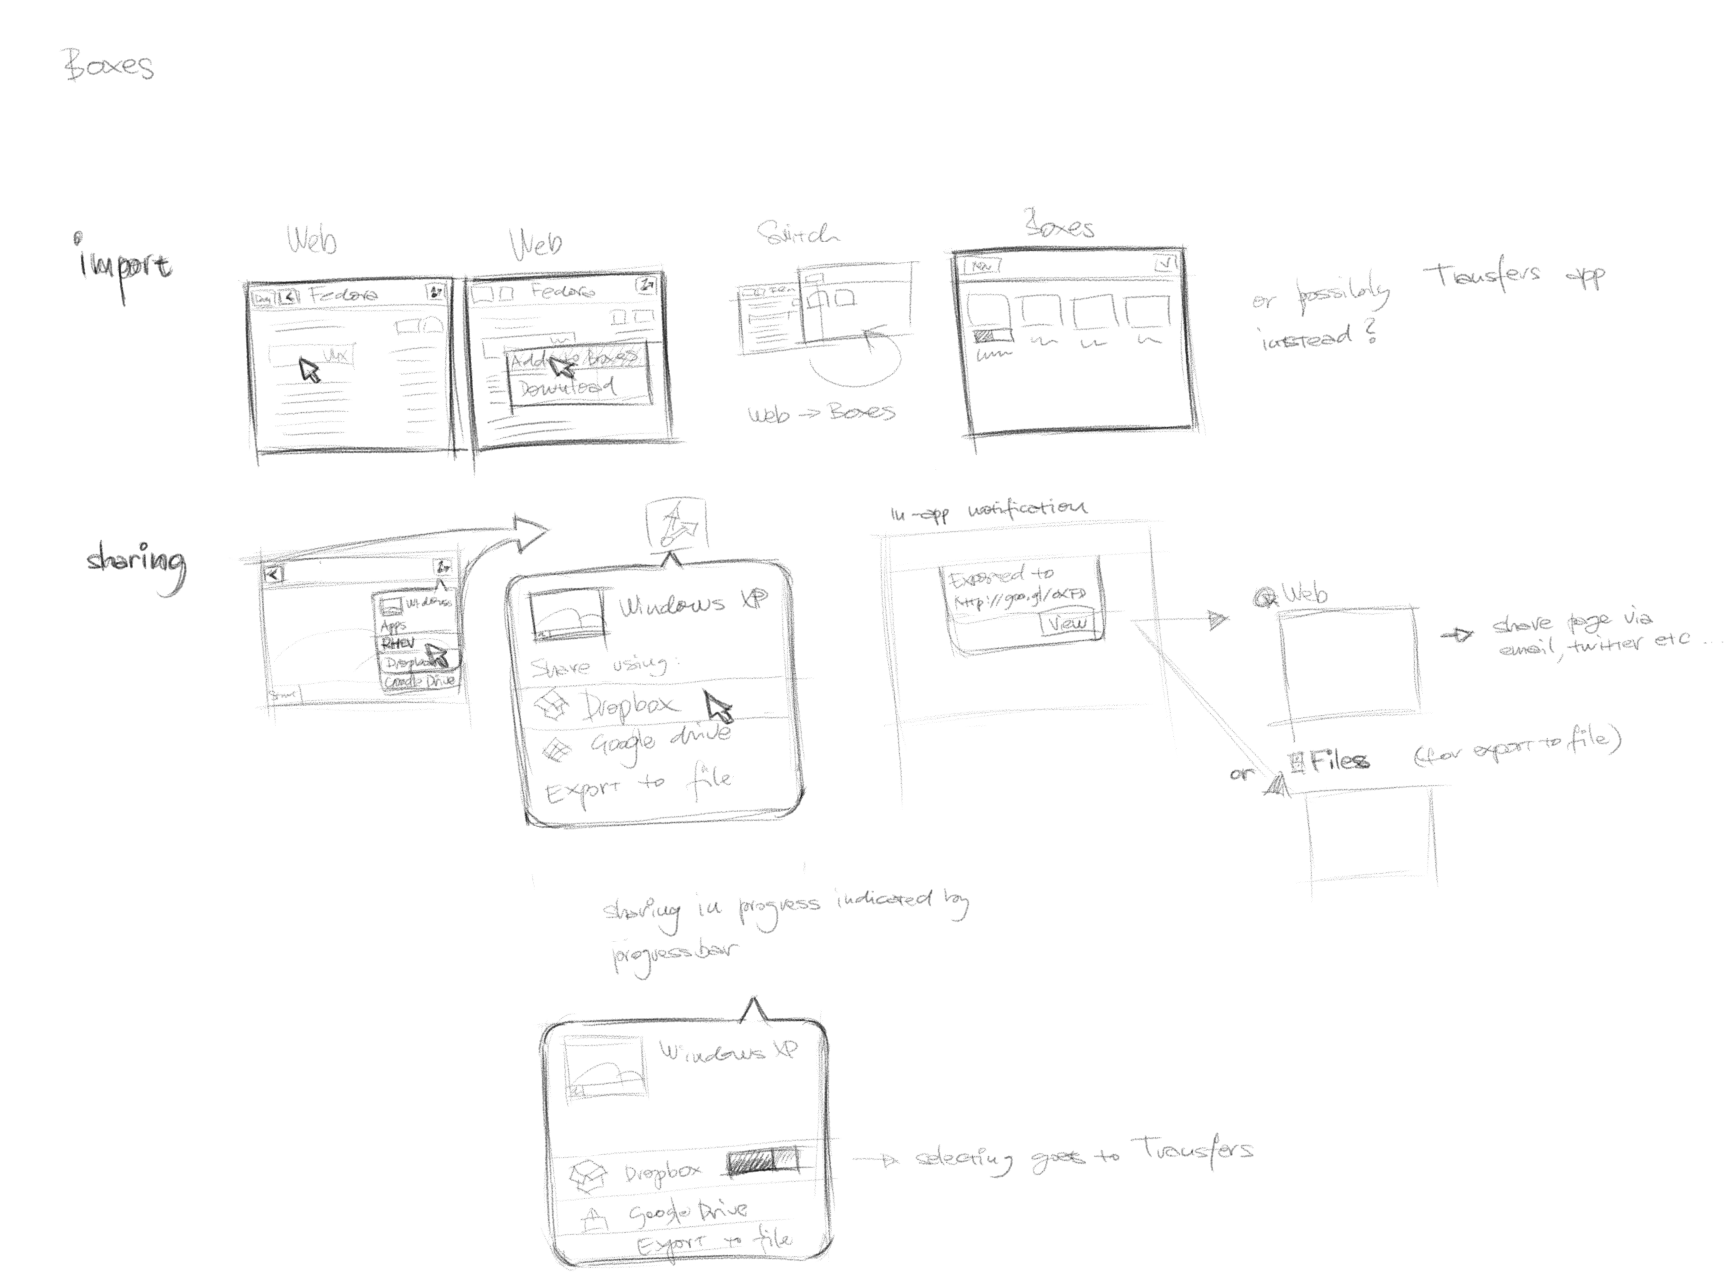 Boxes
import
Web
Fedora
Web
Fedora
Add to Boxes
Download
Switch
Web → Boxes
Boxes
or possibly Transfers app
instead?
sharing
Windows
Apps
RHEV
Dropbox
Google Drive
Windows XP
Share using:
Dropbox
Google drive
Export to file
In-app notification
Exported to
View
Web
share page via
email, twitter etc...
or
Files (for export to file)
sharing in progress indicated by
progressbar
Windows XP
Dropbox
Google Drive
Export to file
→ selecting goes to Transfers